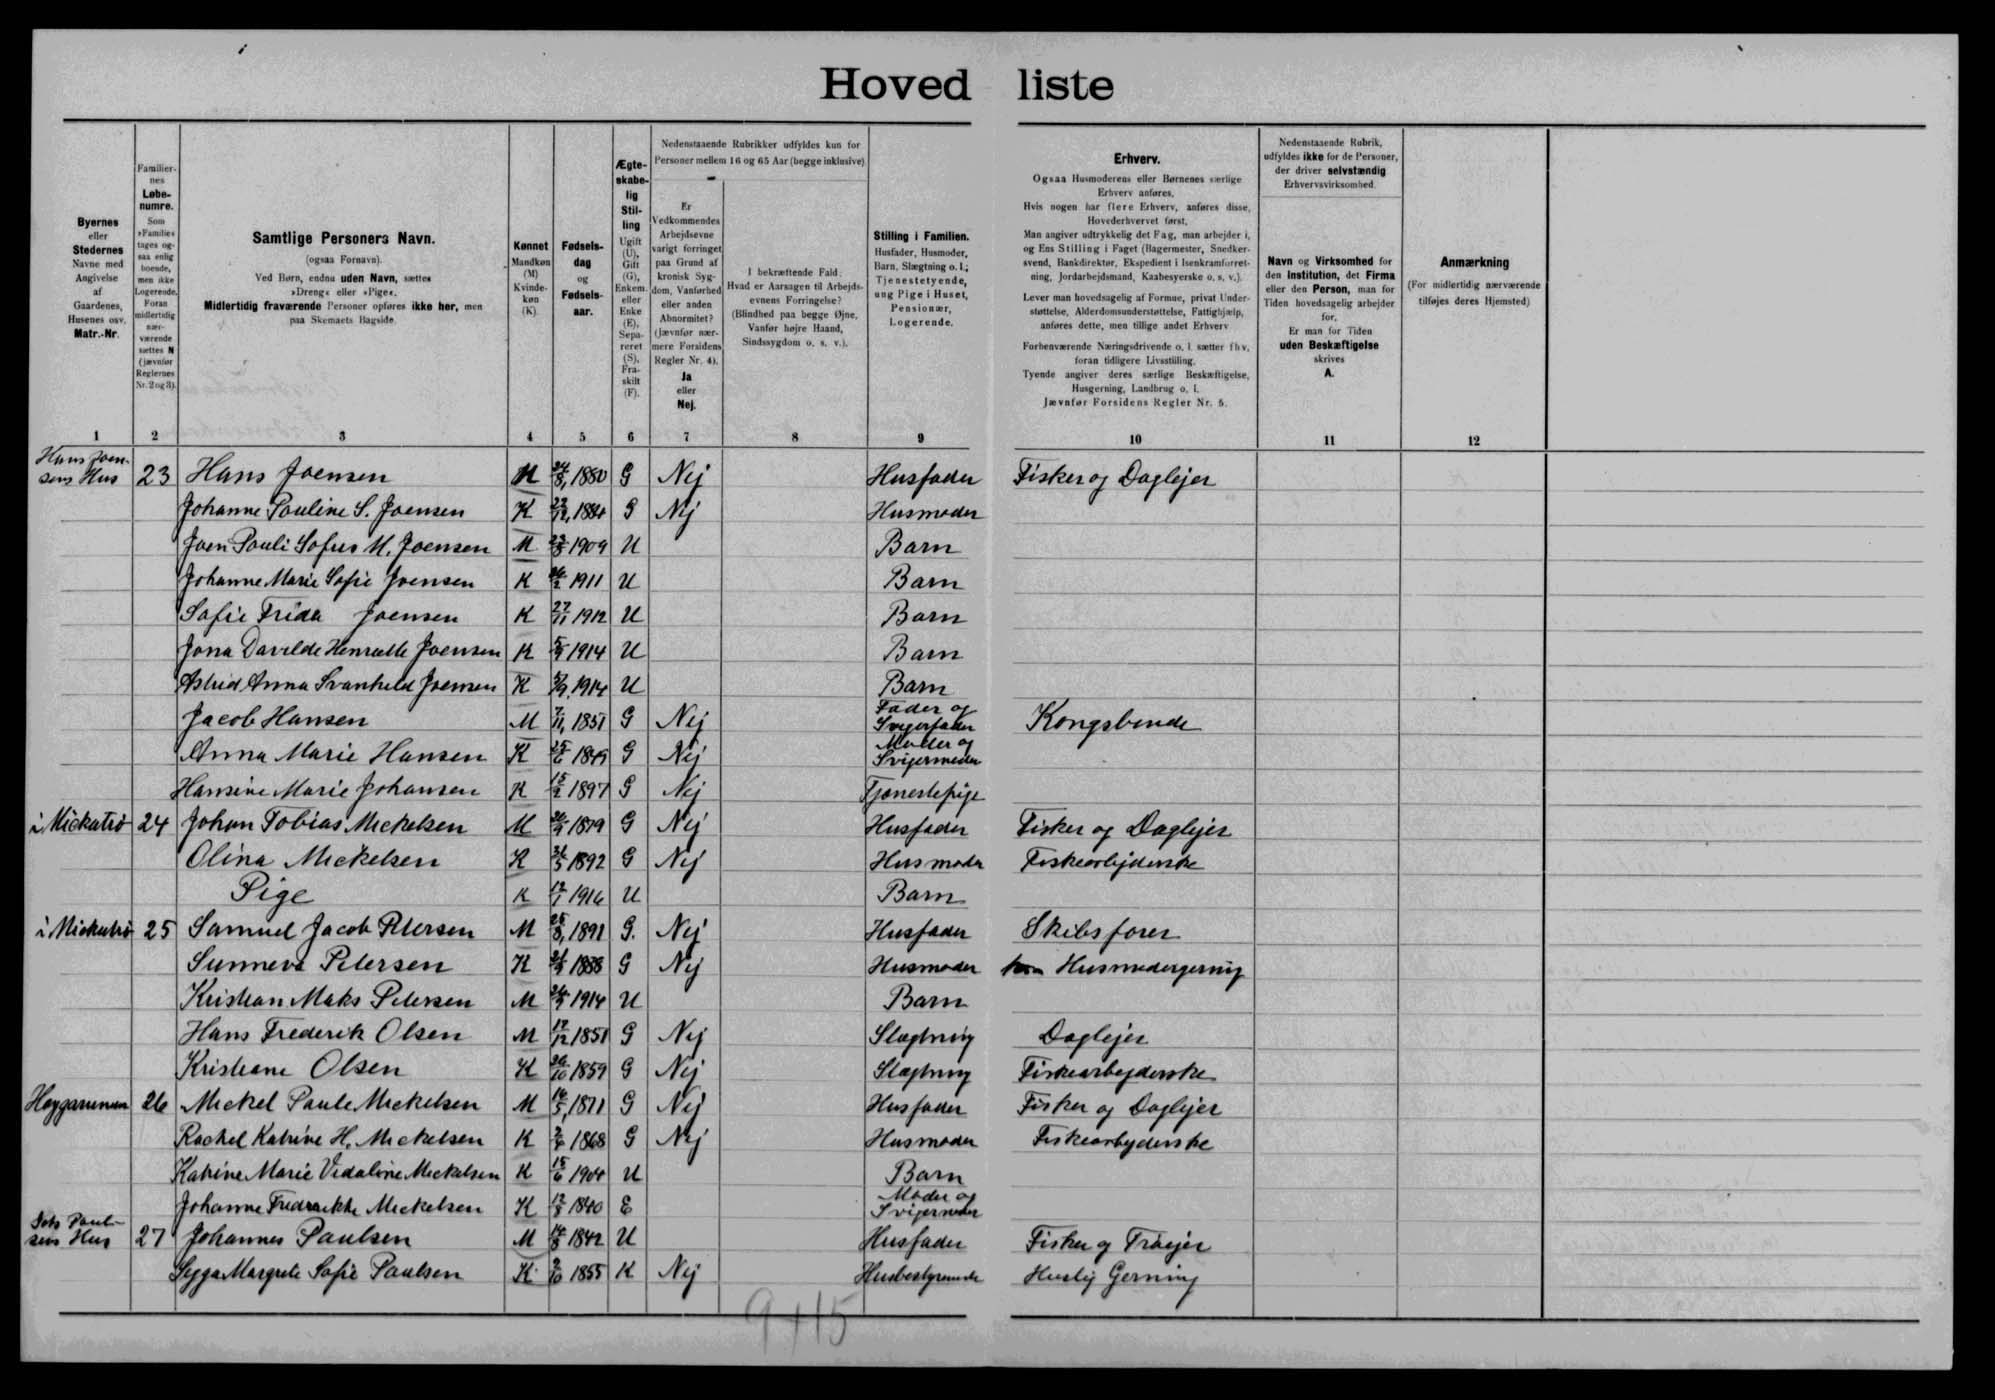 Hovedliste
Byernes
eller
Stedernes
Navne med
Angivelse
af
Gaardenes,
Husenes osv.
Matr.-Nr.
Familier-
nes
Løbe-
numre.
Som
»Familie«
tages og-
saa enlig
boende,
men ikke
Logerende.
Foran
midlertidig
nær-
værende
sættes N
(jævnfør
Reglernes
Nr. 2 og 3).
Samtlige Personers Navn.
(ogsaa Fornavn).
Ved Børn, endnu uden Navn, sættes
»Dreng« eller »Pige«.
Midlertidig fraværende Personer opføres ikke her, men
paa Skemaets Bagside.
Kønnet
Mandkøn
(M)
Kvinde-
køn
(K)
Fødsels-
dag
og
Fødsels-
aar.
Ægte-
skabe-
lig
Stil-
ling
Ugift
(U),
Gift
(G),
Enkem.
eller
Enke
(E),
Sepa-
reret
(S),
Fra-
skilt
(F).
Nedenstaaende Rubrikker udfyldes kun for
Personer mellem 16 og 65 Aar (begge inklusive)
Er
Vedkommendes
Arbejdsevne
varigt forringet
paa Grund af
kronisk Syg-
dom, Vanførhed
eller anden
Abnormitet?
(Jævnfør nær-
mere Forsidens
Regler Nr. 4).
Ja
eller
Nej.
I bekræftende Fald:
Hvad er Aarsagen til Arbejds-
evnens Forringelse?
(Blindhed paa begge Øjne,
Vanfør højre Haand,
Sindssygdom o. s. v.).
Stilling i Familien.
Husfader, Husmoder,
Barn, Slægtning o. l.;
Tjenestetyende,
ung Pige i Huset,
Pensionær,
Logerende.
Erhverv.
Ogsaa Husmoderens eller Børnenes særlige
Erhverv anføres.
Hvis nogen har flere Erhverv, anføres disse,
Hovederhvervet først.
Man angiver udtrykkelig det Fag, man arbejder i,
og Ens Stilling i Faget (Bagermester, Snedker-
svend, Bankdirektør, Ekspedient i Isenkramforret-
ning, Jordarbejdsmand, Kaabesyerske o. s. v.).
Lever man hovedsagelig af Formue, privat Under-
støttelse, Alderdomsunderstøttelse, Fattighjælp,
anføres dette, men tillige andet Erhverv
Forhenværende Næringsdrivende o. l. sætter fhv.
foran tidligere Livsstilling.
Tyende angiver deres særlige Beskæftigelse,
Husgerning, Landbrug o. l.
Jævnfør Forsidens Regler Nr. 5.
Nedenstaaende Rubrik,
udfyldes ikke for de Personer,
der driver selvstændig
Erhvervsvirksomhed.
Navn og Virksomhed for
den Institution, det Firma
eller den Person, man for
Tiden hovedsagelig arbejder
for.
Er man for Tiden
uden Beskæftigelse
skrives
A.
Anmærkning
(For midlertidig nærværende
tilføjes deres Hjemsted)
1 2 3 4 5 6 7 8 9 10 11 12
Hans Joen-
sens Hus 23 Hans Joensen M 24/8, 1880 G Nej Husfader Fisker og Daglejer
Johanne Pauline S. Joensen K G Nej Husmoder
Joen Pauli Sofus M. Joensen M 1909 U Barn
Johanne Marie Sofie Joensen K 26/2 1911 U Barn
Sofie Frida Joensen K 27/11 1912 U Barn
Jona Davilde Henriette Joensen K 1914 U Barn
Astrid Anna Svanhild Joensen K 1914 U Barn
Jacob Hansen M 7/11, 1851 G Nej Fader og Svigerfader Kongsbonde
Anna Marie Hansen K 25/6 1849 G Nej Moder og Svigermoder
Hansine Marie Johansen K 15/2 1897 G Nej Tjenestepige
i Mickatrø 24 Johan Tobias Mickelsen M 1879 G Nej Husfader Fisker og Daglejer
Olina Mickelsen K 31/5 1892 G Nej Husmoder Fiskearbejderske
Pige K 12/1 1916 U Barn
i Mickatrø 25 Samuel Jacob Petersen M 25/8, 1891 G. Nej Husfader Skibsfører
Sunneva Petersen K 1888 G Nej Husmoder Husmodergerning
Kristian Maks Petersen M 1914 U Barn
Hans Frederik Olsen M 17/12 1851 G Nej Slægtning Daglejer
Kristiane Olsen K 1859 G Nej Slægtning Fiskearbejderske
26 Mickel Paule Mickelsen M 16/5, 1871 G Nej Husfader Fisker og Daglejer
Rachel Katrine H. Mickelsen K 1868 G Nej Husmoder Fiskearbejderske
Katrine Marie Vidaline Mickelsen K 15/6 1904 U Barn
Johanne Fredrikke Mickelsen K 1840 E Moder og Svigermoder
Johs Paul-
sens Hus 27 Johannes Paulsen M 1842 U Husfader Fisker og
Margrete Sofie Paulsen K 1855 K Nej Husbestyrende Huslig Gerning
9+15